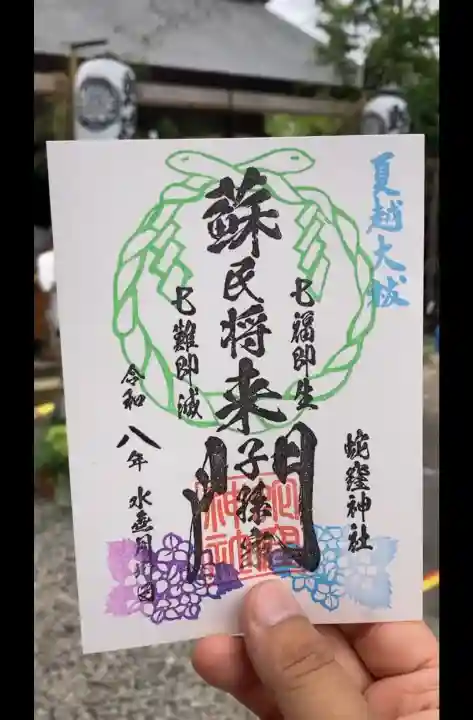 夏越大祓
蛇窪神社
七福即生
蘇民将来子孫
門
七難即滅
令和八年水無月